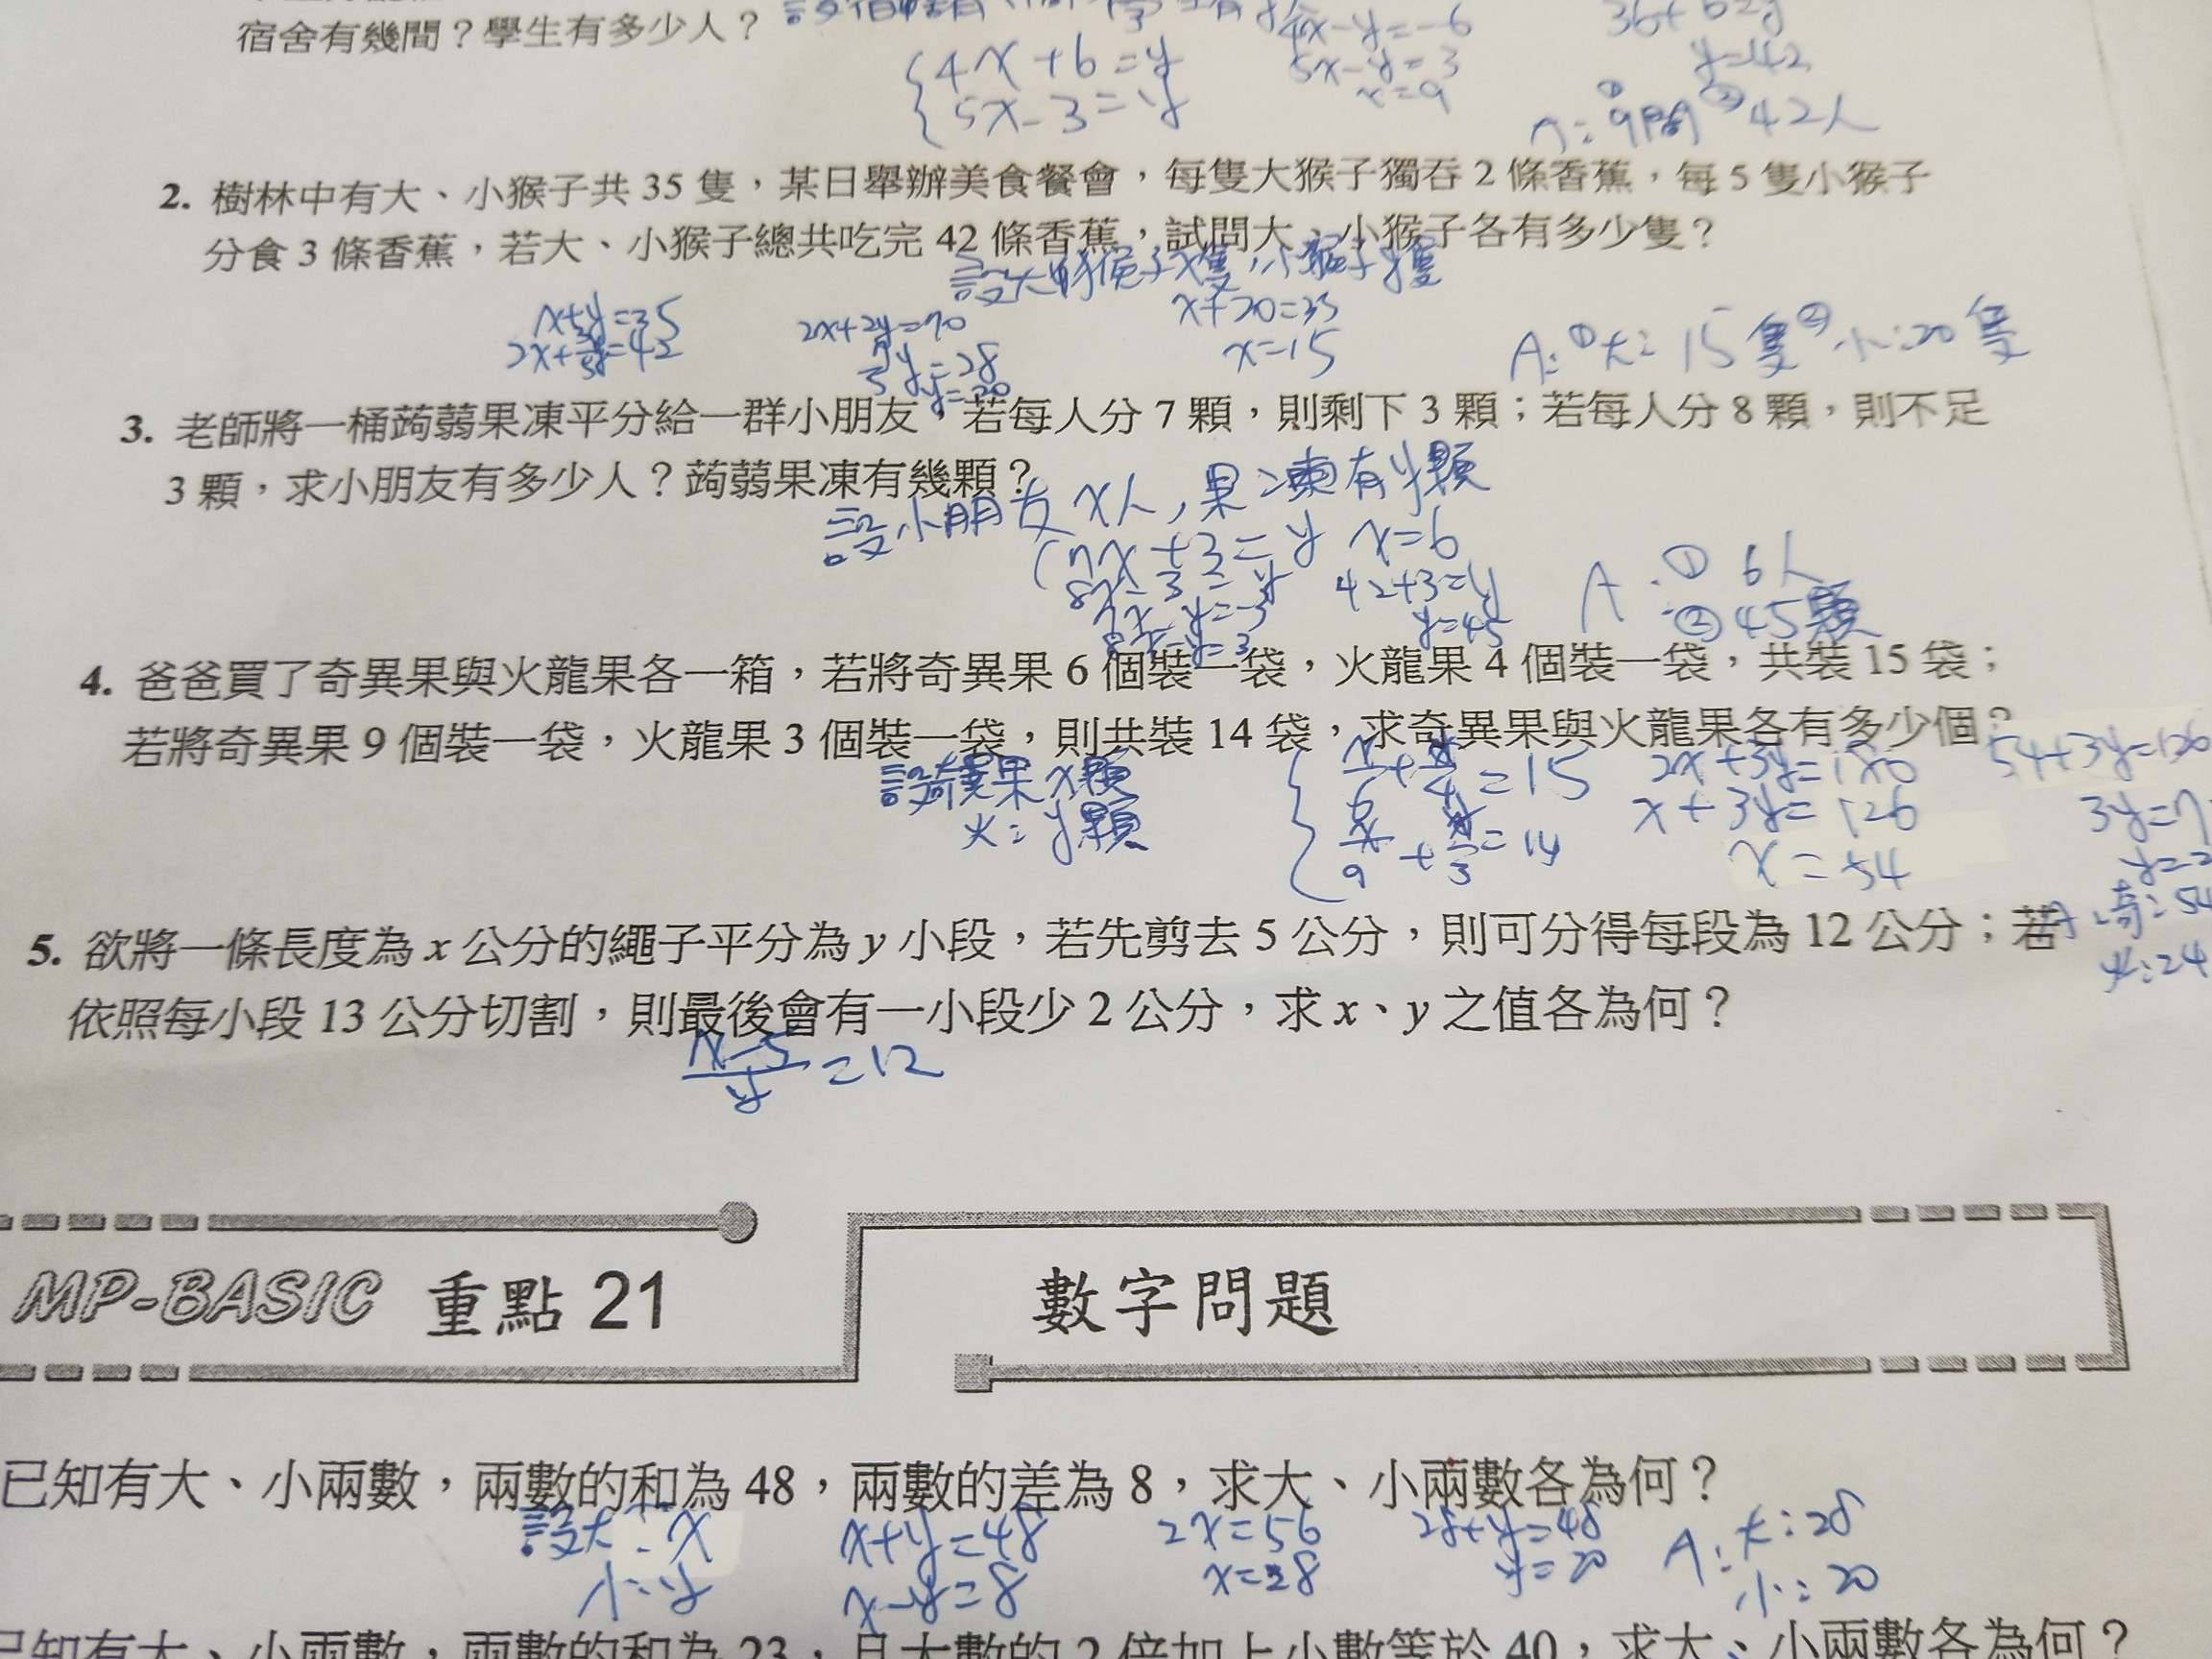 宿舍有幾間？學生有多少人？
4x+6=y
5x-3=y
4x-y=-6
5x-y=3
x=9
36+6=y
y=42
A:①9間②42人
2. 樹林中有大、小猴子共 35 隻，某日舉辦美食餐會，每隻大猴子獨吞 2 條香蕉，每 5 隻小猴子
分食 3 條香蕉，若大、小猴子總共吃完 42 條香蕉，試問大、小猴子各有多少隻？
設大猴子x隻，小猴子y隻
x+y=35
2x+3/5y=42
2x+2y=70
7/5y=28
y=20
x+20=35
x=15
A:①大:15隻②小:20隻
3. 老師將一桶蒟蒻果凍平分給一群小朋友，若每人分 7 顆，則剩下 3 顆；若每人分 8 顆，則不足
3 顆，求小朋友有多少人？蒟蒻果凍有幾顆？
設小朋友x人，果凍有y顆
7x+3=y
8x-3=y
7x-y=-3
8x-y=3
x=6
42+3=y
y=45
A:①6人
②45顆
4. 爸爸買了奇異果與火龍果各一箱，若將奇異果 6 個裝一袋，火龍果 4 個裝一袋，共裝 15 袋；
若將奇異果 9 個裝一袋，火龍果 3 個裝一袋，則共裝 14 袋，求奇異果與火龍果各有多少個？
設奇異果x顆
火:y顆
x/6+y/4=15
x/9+y/3=14
2x+3y=180
x+3y=126
x=54
54+3y=126
3y=7
奇:54
火:24
5. 欲將一條長度為 x 公分的繩子平分為 y 小段，若先剪去 5 公分，則可分得每段為 12 公分；若
依照每小段 13 公分切割，則最後會有一小段少 2 公分，求 x、y 之值各為何？
x-5/y=12
MP-BASIC 重點 21
數字問題
已知有大、小兩數，兩數的和為 48，兩數的差為 8，求大、小兩數各為何？
設大:x
小:y
x+y=48
x-y=8
2x=56
x=28
28+y=48
y=20
A:大:28
小:20
已知有大、小兩數，兩數的和為 23，且大數的 2 倍加上小數等於 40，求大、小兩數各為何？